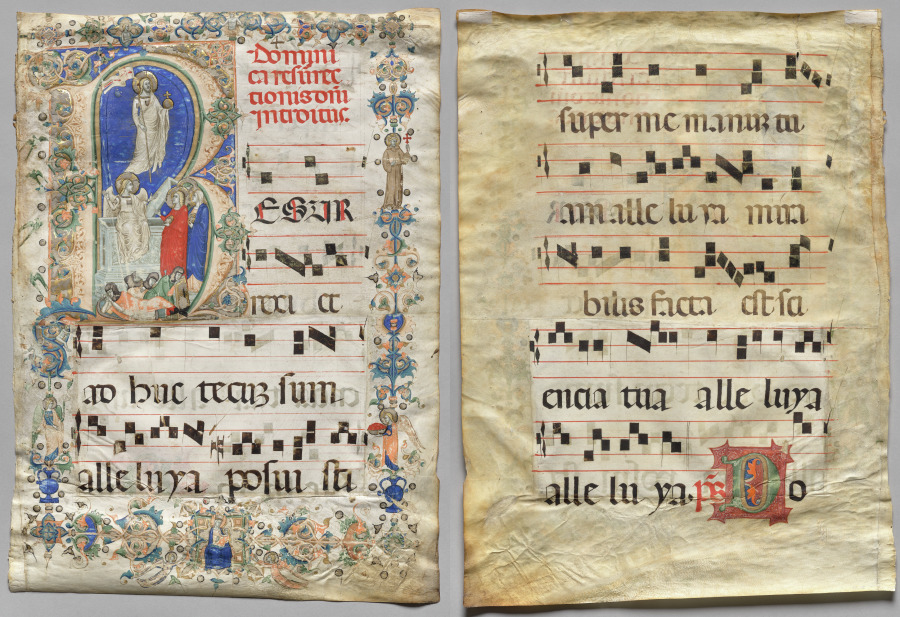 Domini
ca resurre
ctionis domi
Introitus.
RESUR
rexi et
ad huc tecum sum
alleluya posui sti
super me manum tu
am alle lu ya mira
bilis facta est sci
encia tua alle luya
alle lu ya. ps Do